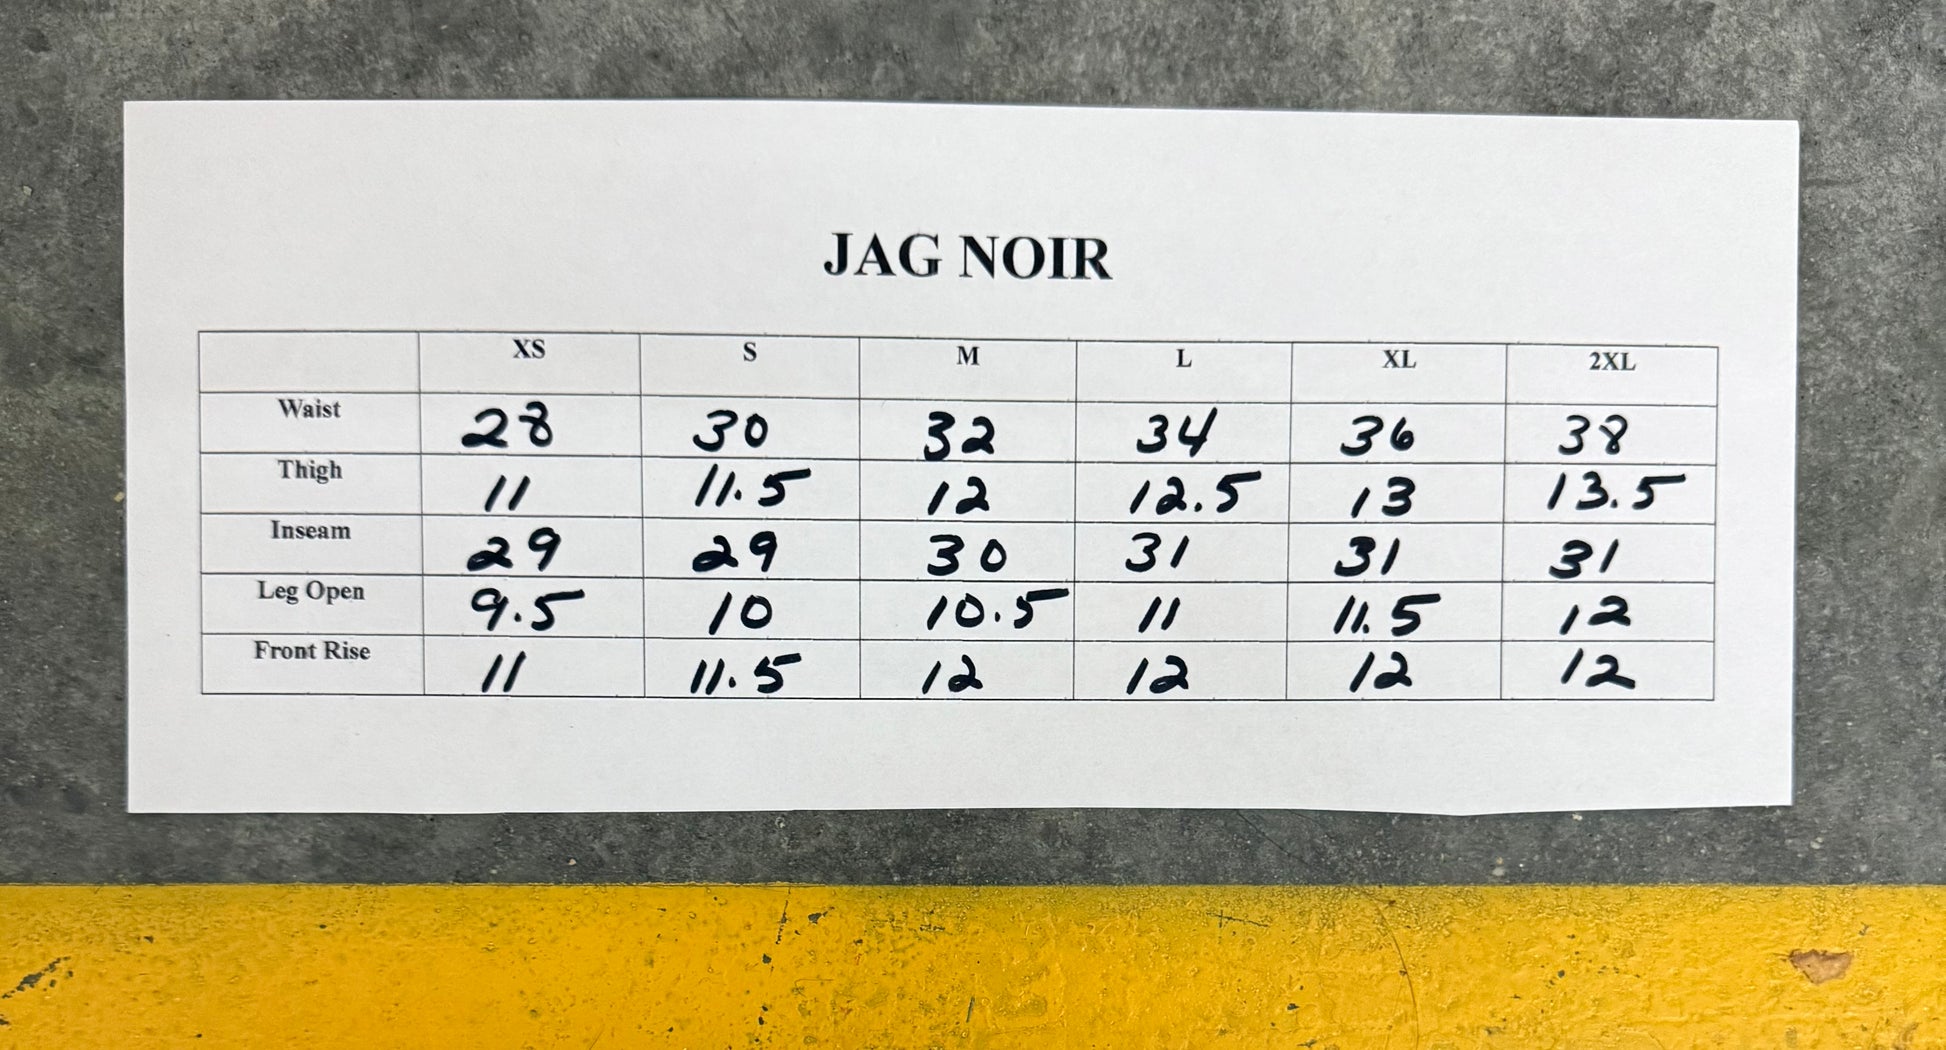 JAG NOIR
XS S M L XL 2XL
Waist 28 30 32 34 36 38
Thigh 11 11.5 12 12.5 13 13.5
Inseam 29 29 30 31 31 31
Leg Open 9.5 10 10.5 11 11.5 12
Front Rise 11 11.5 12 12 12 12